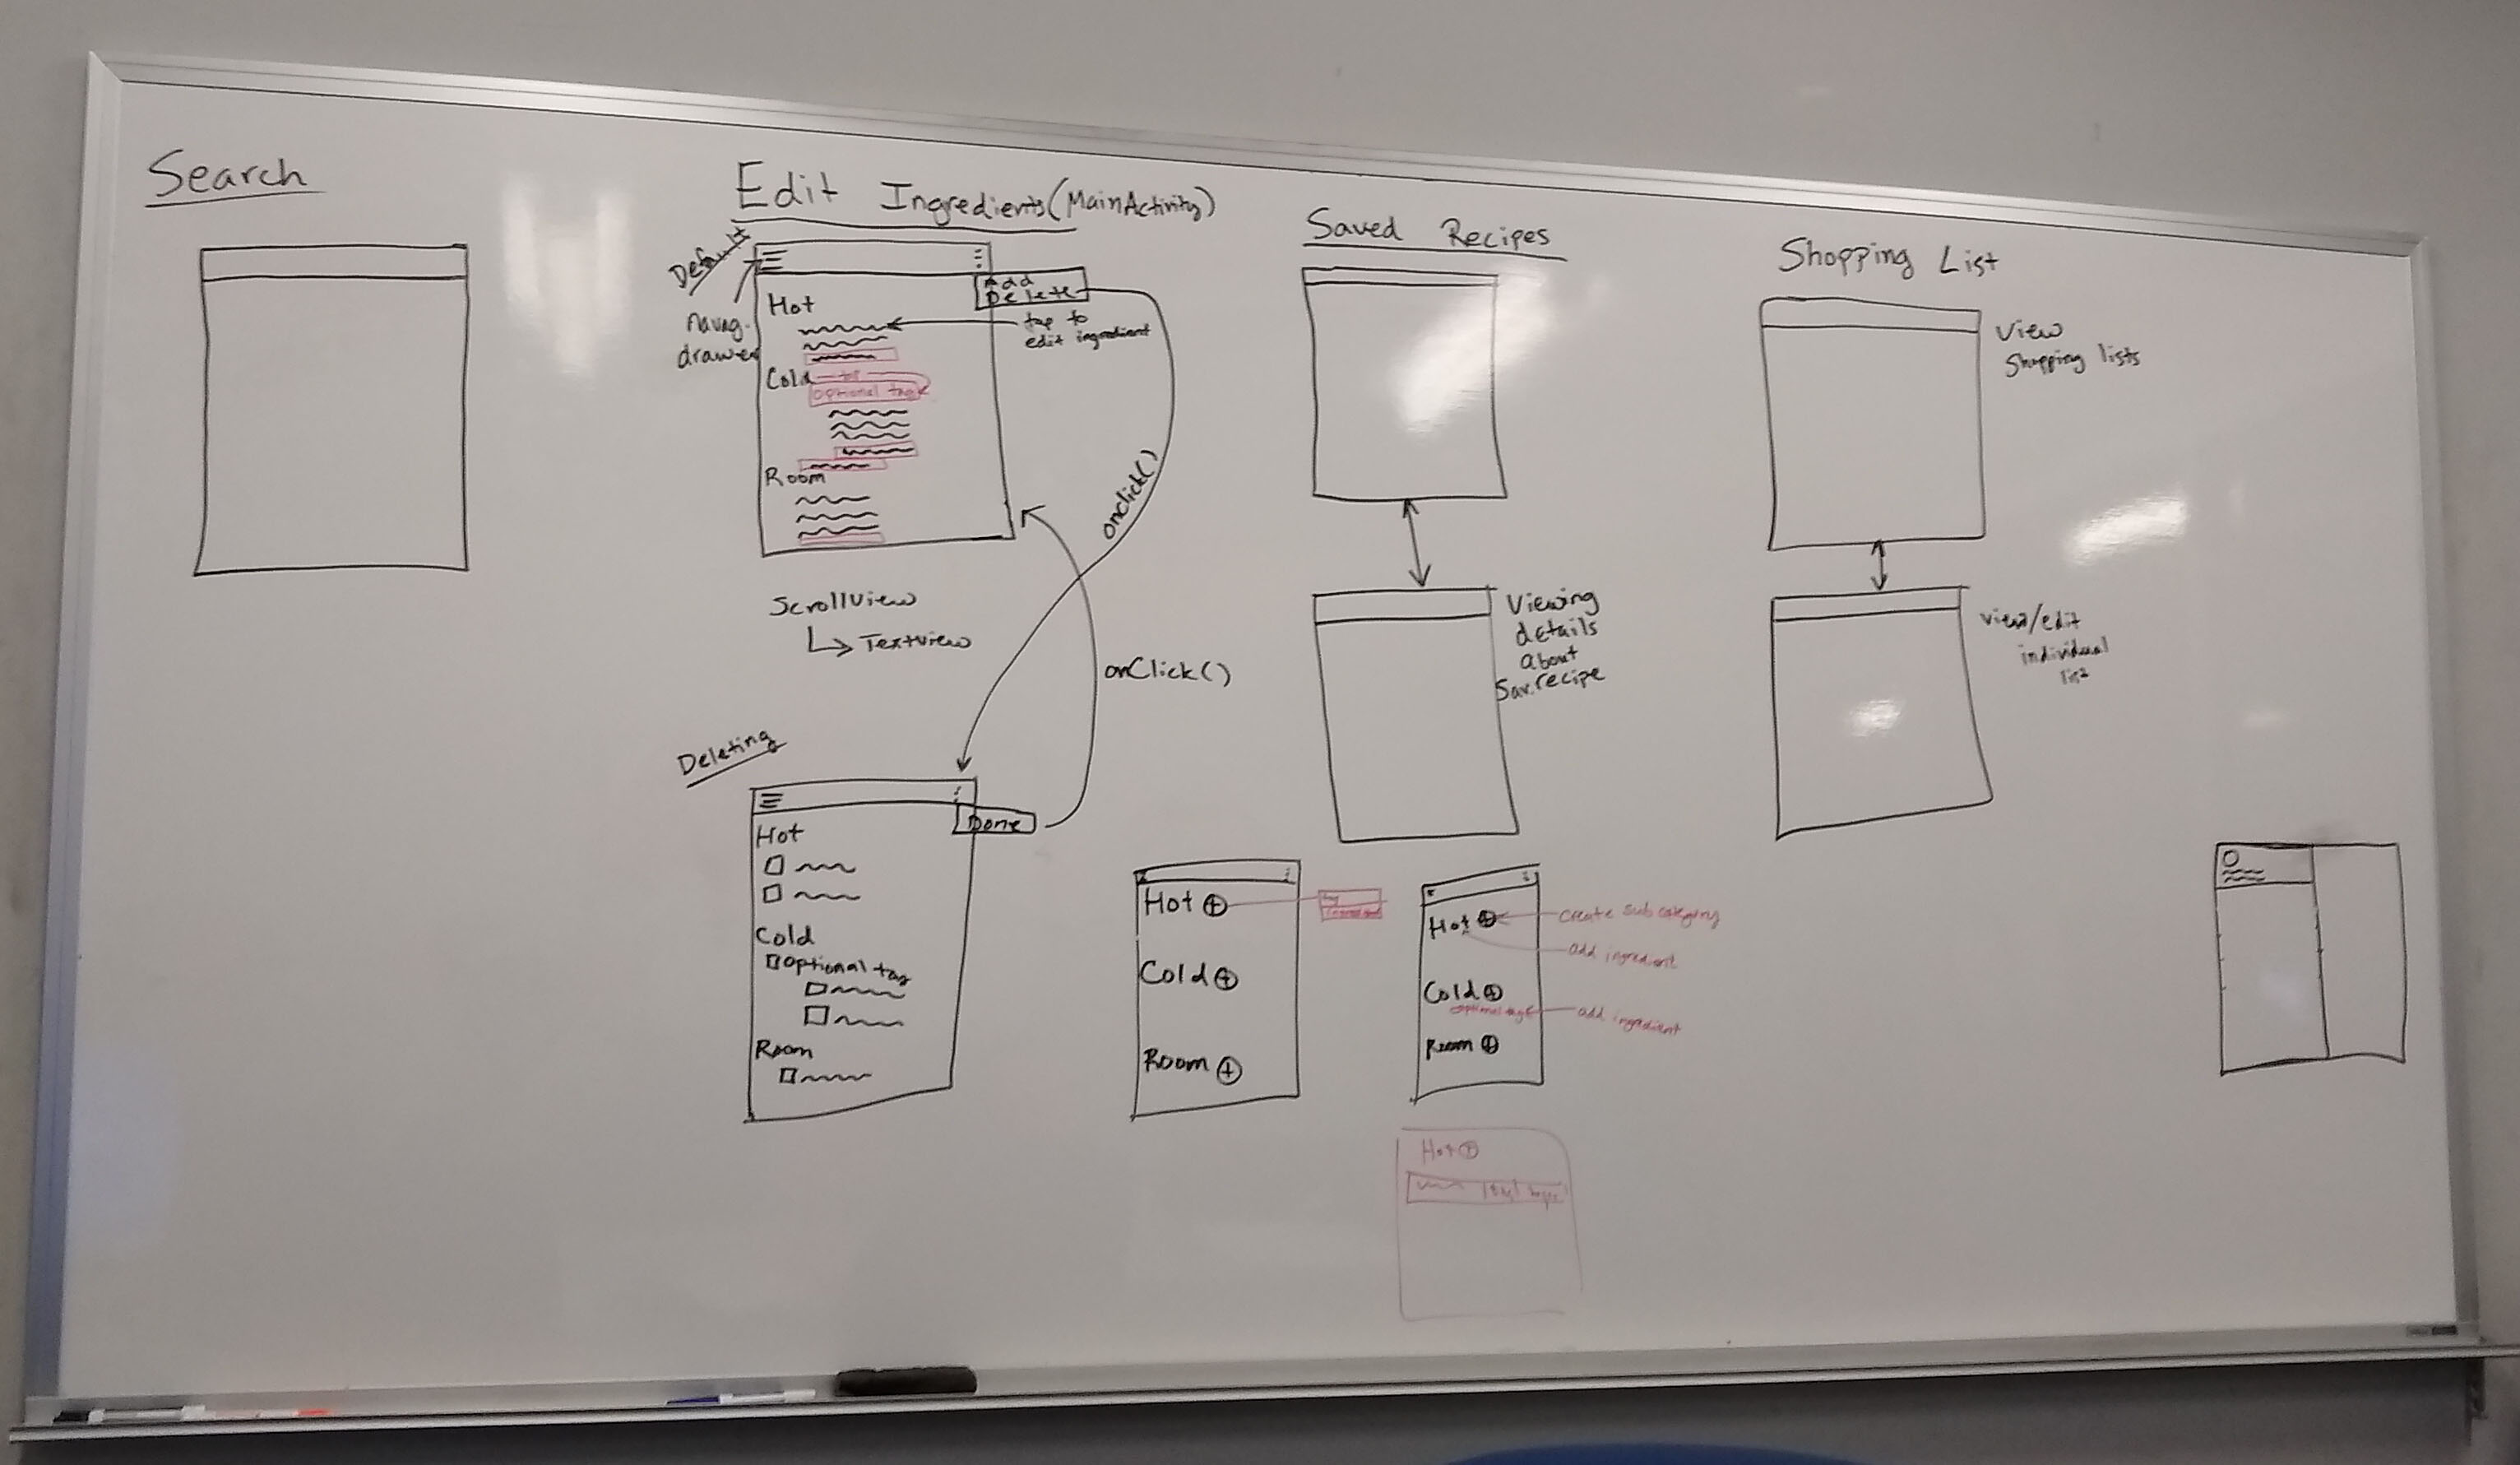 Search
Edit Ingredients (MainActivity)
Default
navig.
drawer
Add
Delete
Hot
tap to
edit ingredient
Cold
tap
optional tag
Room
onclick()
ScrollView
TextView
onClick()
Deleting
Done
Hot
Cold
optional tag
Room
Saved Recipes
Viewing
details
about
Sav. recipe
Shopping List
View
Shopping lists
view/edit
individual
list
Hot +
tag
ingredient
Cold +
Room +
Hot +
create sub category
add ingredient
Cold +
optional tag
add ingredient
Room +
Hot +